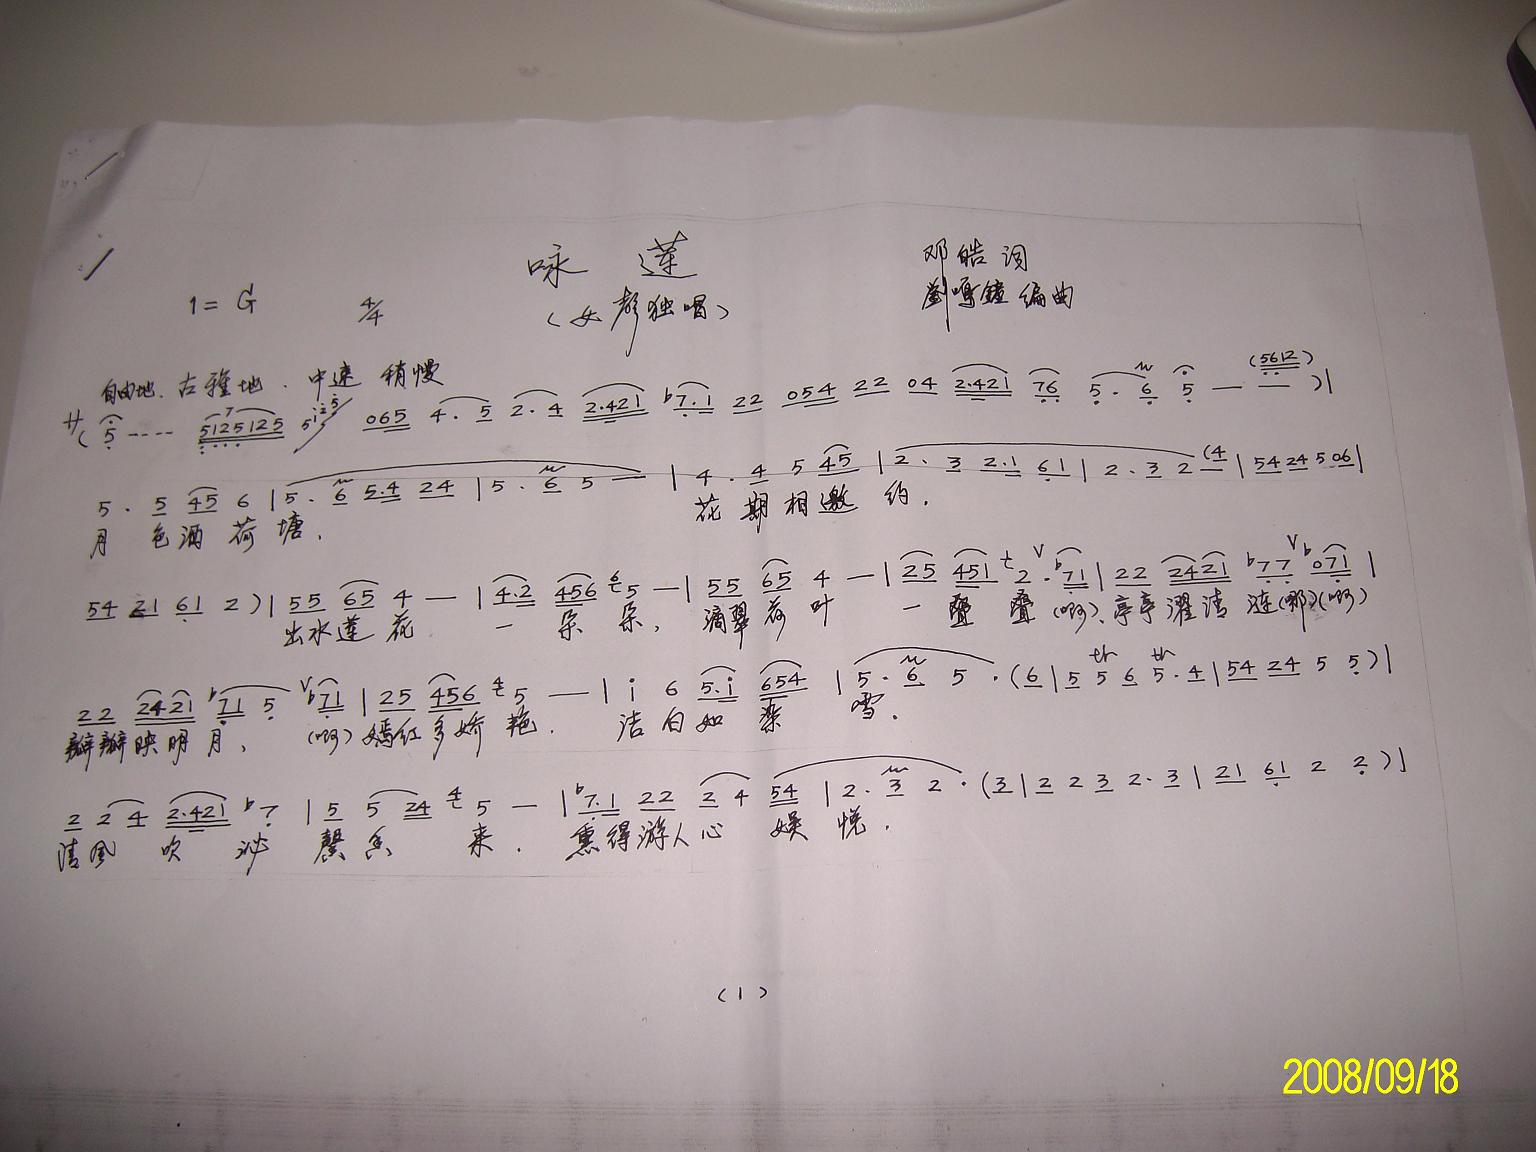 咏 莲
邓皓词
1= G 4/4 (女声独唱) 编曲
自由地、古雅地. 中速 稍慢
サ( 5 ---- 5125125 5i25 065 4. 5 2. 4 2.421 b7.1 22 054 22 04 2.421 76 5. 6 5 — — (5612) )|
5. 5 45 6 | 5. 6 5.4 24 | 5. 6 5 — | 4. 4 5 45 | 2. 3 2.1 61 | 2. 3 2 (4 | 54 24 5 06 |
月 色洒荷塘. 花期相邀 约.
54 21 61 2 ) | 55 65 4 — | 4.2 456 5 — | 55 65 4 — | 25 451 2. b71 | 22 2421 b77 b071 |
出水莲花 一朵朵, 滴翠荷叶 一叠叠(啊)、亭亭濯清涟(哪)(啊)
22 2421 b71 5 b71 | 25 456 5 — | i 6 5.i 654 | 5. 6 5 . (6 | 5 5 6 5. 4 | 54 24 5 5 ) |
瓣瓣映明月, (啊)嫣红多娇艳. 洁白如 雪.
2 2 4 2.421 b7 | 5 5 24 5 — | b7.1 22 2 4 54 | 2. 3 2 . (3 | 2 2 3 2. 3 | 21 61 2 2 ) |
清风 吹 馨香 来. 熏得游人心 娱 悦.
(1)
2008/09/18